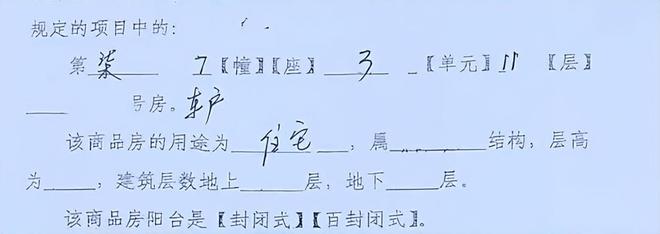 规定的项目中的:
第柒 7【幢】【座】 3 【单元】11 【层】
号房。东户
该商品房的用途为 住宅 ，属 结构，层高
为 ，建筑层数地上 层，地下 层。
该商品房阳台是【封闭式】【百封闭式】。